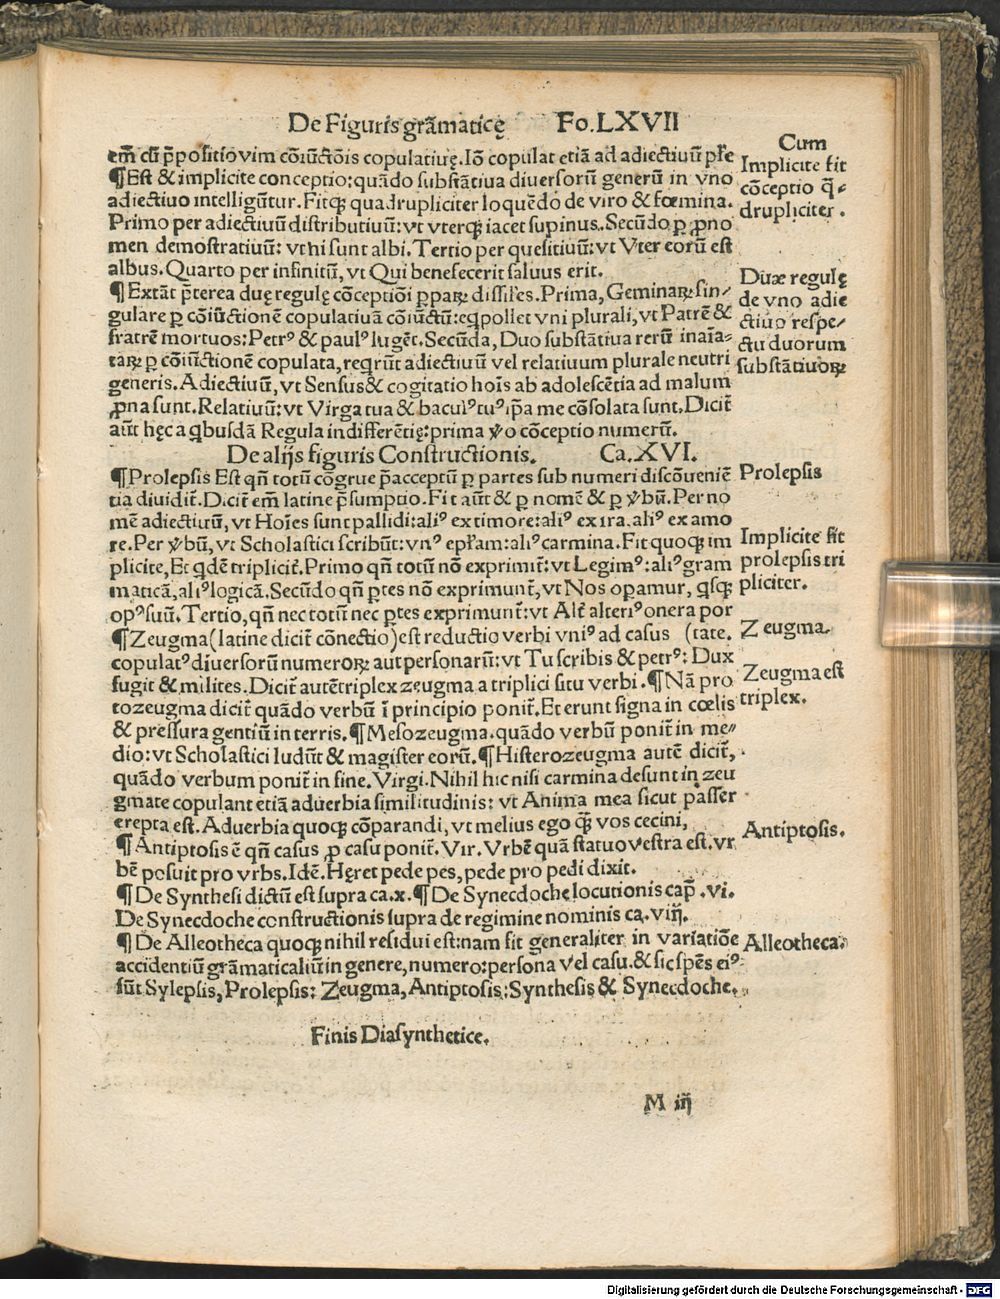 De Figuris grāmaticę Fo.LXVII
em̄ cū p̄positio vim cōiūctōis copulatiuę. Iō copulat etiā ad adiectiuū pr̄e
¶Est & implicite conceptio: quādo substātiua diuersorū generū in vno
adiectiuo intelligūtur. Fitqꝫ quadrupliciter loquēdo de viro & fœmina.
Primo per adiectiuū distributiuū: vt vterqꝫ iacet supinus. Secūdo ꝑ ꝓno
men demostratiuū: vt hi sunt albi. Tertio per quesitiuū: vt Vter eorū est
albus. Quarto per infinitū, vt Qui benefecerit saluus erit.
Cum
Implicite fit
cōceptio q̄-
drupliciter.
¶Extāt p̄terea duę regulę cōceptiōi ꝑparꝝ dissiłes. Prima, Geminarꝝ sin-
gulare ꝑ cōiūctionē copulatiuā cōiūctū: eqpollet vni plurali, vt Patrē &
fratrē mortuos: Petrꝰ & paulꝰ lugēt. Secūda, Duo substātiua rerū inaīa-
tarꝝ ꝑ cōiūctionē copulata, reqrūt adiectiuū vel relatiuum plurale neutri
generis. Adiectiuū, vt Sensus & cogitatio hoīs ab adolescētia ad malum
ꝓna sunt. Relatiuū: vt Virga tua & baculꝰ tuꝰ ip̄a me cōsolata sunt. Dicit̄
aūt hęc a qbusdā Regula indifferētię: prima v̄o cōceptio numerū.
Duæ regulę
de vno adie
ctiuo respe-
ctu duorum
substātiuorꝝ
De alijs figuris Constructionis. Ca.XVI.
¶Prolepsis Est qn̄ totū cōgrue p̄acceptū ꝑ partes sub numeri discōueniē
tia diuidit̄. Dicit̄ em̄ latine p̄sumptio. Fit aūt & ꝑ nomē & ꝑ v̄bū. Per no
mē adiectiuū, vt Hoīes sunt pallidi: aliꝰ ex timore: aliꝰ ex ira. aliꝰ ex amo
re. Per v̄bū, vt Scholastici scribūt: vnꝰ epł̄am: aliꝰ carmina. Fit quoqꝫ im
plicite, Et qdē triplicit̄. Primo qn̄ totū nō exprimit̄: vt Legimꝰ: aliꝰ gram
maticā, aliꝰ logicā. Secūdo qn̄ ꝑtes nō exprimunt̄, vt Nos opamur, qsqꝫ
opꝰ suū. Tertio, qn̄ nec totū nec ꝑtes exprimunt̄: vt Alt̄ alteriꝰ onera por
Prolepsis
Implicite fit
prolepsis tri
pliciter.
¶Zeugma (latine dicit̄ cōnectio) est reductio verbi vniꝰ ad casus (tate.
copulatꝰ diuersorū numerorꝝ aut personarū: vt Tu scribis & petrꝰ: Dux
fugit & milites. Dicit̄ autē triplex zeugma a triplici situ verbi. ¶Nā pro
tozeugma dicit̄ quādo verbū ī principio ponit̄. Et erunt signa in cœlis
& pressura gentiū in terris. ¶Mesozeugma. quādo verbū ponit̄ in me-
dio: vt Scholastici ludūt & magister eorū. ¶Histerozeugma autē dicit̄,
quādo verbum ponit̄ in fine. Virgi. Nihil hic nisi carmina desunt in zeu
gmate copulant etiā aduerbia similitudinis: vt Anima mea sicut passer
erepta est. Aduerbia quoqꝫ cōparandi, vt melius ego q̄ꝫ vos cecini,
Zeugma.
Zeugma est
triplex.
¶Antiptosis ē qn̄ casus ꝓ casu ponit̄. Vir. Vrbē quā statuo vestra est. vr
bē posuit pro vrbs. Idē. Hęret pede pes, pede pro pedi dixit.
Antiptosis.
¶De Synthesi dictū est supra ca.x. ¶De Synecdoche locutionis cap̄.vi.
De Synecdoche constructionis supra de regimine nominis ca. viij̄.
¶De Alleotheca quoqꝫ nihil residui est: nam fit generaliter in variatiōe
accidentiū grāmaticaliū in genere, numero: persona vel casu. & sic spēs eiꝰ
sūt Sylepsis, Prolepsis: Zeugma, Antiptosis: Synthesis & Synecdoche.
Alleotheca.
Finis Diasynthetice.
M iij̄
Digitalisierung gefördert durch die Deutsche Forschungsgemeinschaft - DFG